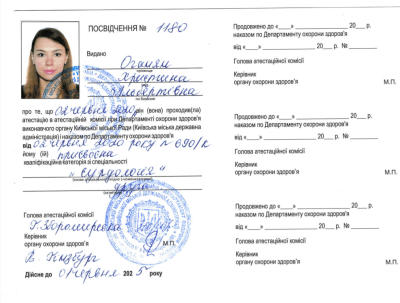 ПОСВІДЧЕННЯ № 1180
Видано Оганян
прізвище
Христина
Альбертівна
по батькові
про те, що 02 червня 2020 він (вона) проходив(ла)
атестацію в атестаційній комісії при Департаменті охорони здоров'я
виконавчого органу Київської міської Ради (Київська міська державна
адміністрація) і наказом по Департаменту охорони здоров'я
від 02 червня 2020 року № 690/к
йому (їй) присвоєна
кваліфікаційна категорія зі спеціальності
"Сурдологія"
друга
Голова атестаційної комісії
Керівник
органу охорони здоров'я М.П.
В. Гінзбург
Дійсне до 01 червня 2025 року
Продовжено до «____» ____ 20___ р.
наказом по Департаменту охорони здоров'я
від «____» ____ 20___ р. № ____
Голова атестаційної комісії
Керівник
органу охорони здоров'я М.П.
Продовжено до «____» ____ 20___ р.
наказом по Департаменту охорони здоров'я
від «____» ____ 20___ р. № ____
Голова атестаційної комісії
Керівник
органу охорони здоров'я М.П.
Продовжено до «____» ____ 20___ р.
наказом по Департаменту охорони здоров'я
від «____» ____ 20___ р. № ____
Голова атестаційної комісії
Керівник
органу охорони здоров'я М.П.